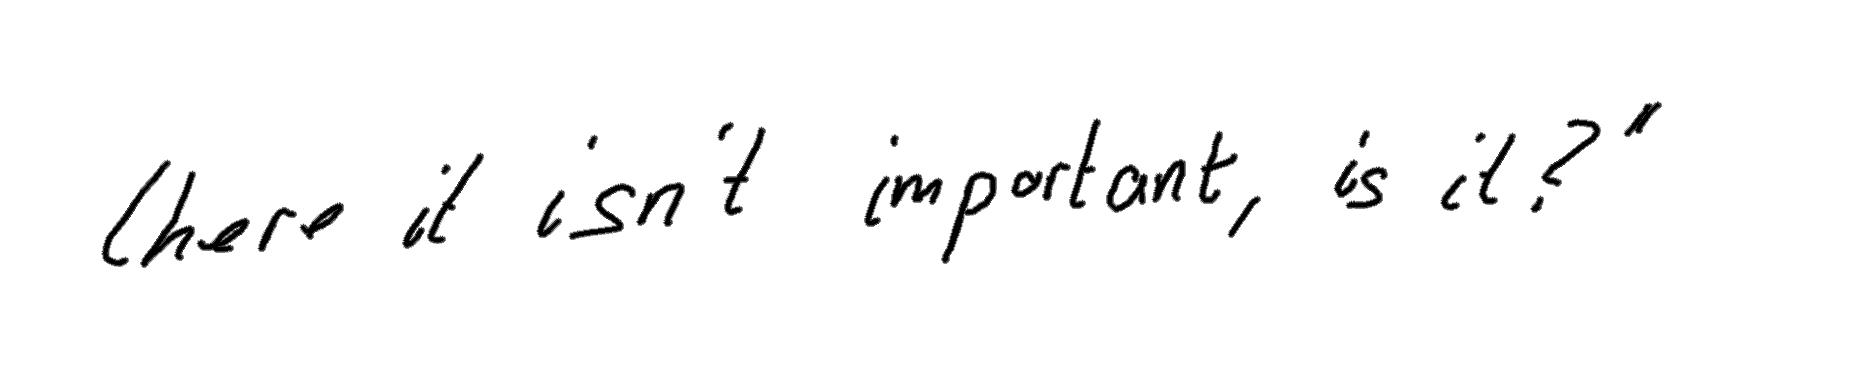 there it isn't important, is it?"